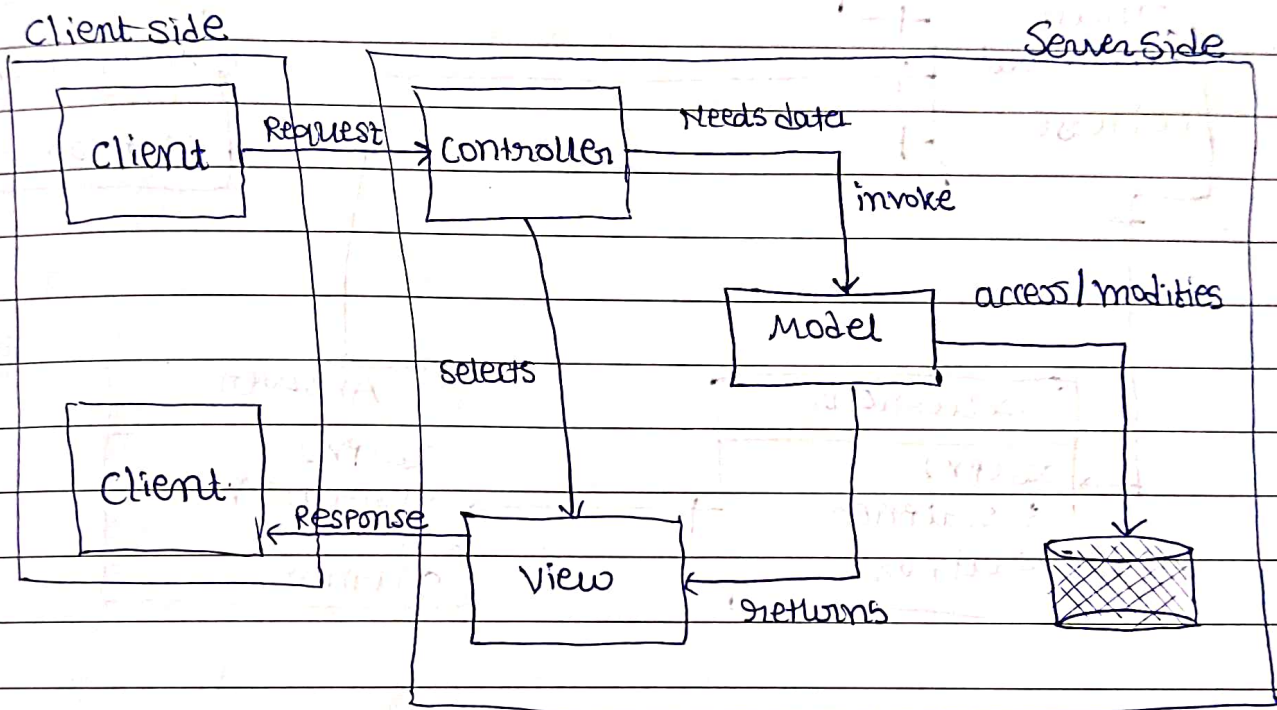 Client side
Server Side
Client
Request
Controller
Needs data
invoke
Model
access/modifies
selects
Client
Response
View
returns